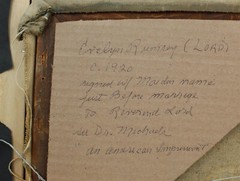 Evelyn Rumsey (LORD)
c. 1920
signed w/ Maiden name
just Before marriage
To Reverend Lord
see Dr. Michael's
"an American Impressionist"